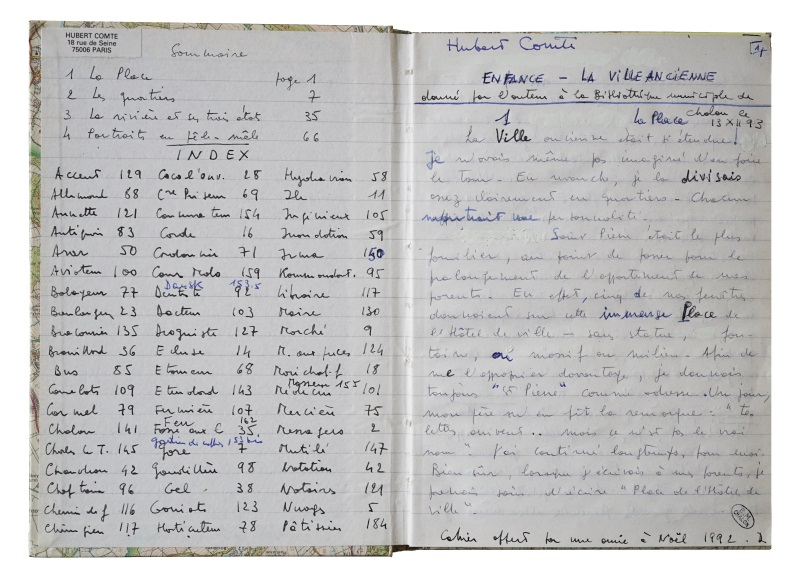 HUBERT COMTE
18 rue de Seine
75006 PARIS
Sommaire
1 La Place page 1
2 Les quartiers 7
3 La rivière et son trait 35
4 Portraits en pêle-mêle 66
INDEX
Accent 129 Cocol'ouv. 28 Hydravion 58
Allemand 88 69 Ile 11
Annette 121 154 Ingénieur 105
Antiquin 83 Corde 16 Inondation 59
Anar 50 Cordonnier 71 Irma 150
Aviateur 100 Cour Modo 159 Kommandant. 95
Dansk 153.5
Balayeur 77 Dentiste 92 Libraire 117
Boulanger 23 Docteur 103 Maire 130
Braconnier 135 Droguiste 127 Marché 9
Brouillard 36 Ecluse 14 M. aux puces 124
Bus 85 Etameur 68 Maréchal.f 18
155
Camelots 109 Etendard 143 Médecin 101
Carmel 79 Fermière 107 Mercière 75
Feu 162
Chalon 141 Fosse aux C. 35 Messagers 2
Charles le T. 145 Gare 7 Mutilé 147
Chaudron 42 98 Natation 42
Chef train 96 Gel 38 Notaires 121
Chemin de f 116 123 Nuages 5
117 Horticulteur 78 Pâtissier 184
Hubert Comte 1
ENFANCE - LA VILLE ANCIENNE
donné par l'auteur à la Bibliothèque municipale de
Chalon le
1 La Place 13 XII 93
La Ville ancienne était si étendue!
Je n'avais même pas imaginé d'en faire
le tour. En revanche, je la divisais
assez clairement en quartiers. Chacun
avait une personnalité.
Saint Pierre était le plus
familier, au point de passer pour le
prolongement de l'appartement de mes
parents. En effet, cinq de nos fenêtres
donnaient sur cette immense Place de
l'Hôtel de ville – sans statue, fon-
taine, ou massif au milieu. Afin de
me l'approprier davantage, je donnais
toujours "St Pierre" comme adresse. Un jour,
mon père m'en fit la remarque : "tes
lettres arrivent.. mais ce n'est pas le vrai
nom" J'ai continué longtemps, pour moi.
Bien sûr, lorsque j'écrivais à mes parents, je
prenais soin d'écrire "Place de l'Hôtel de
ville".
Cahier offert par une amie à Noël 1992.